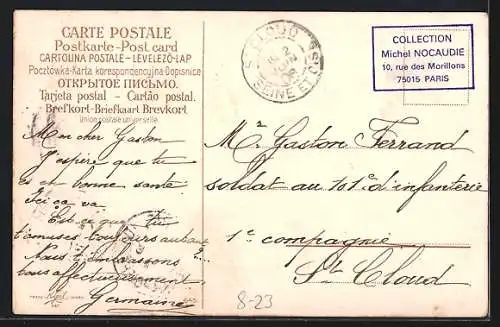 CARTE POSTALE
Postkarte-Post card
CARTOLINA POSTALE-LEVELEZŐ-LAP
Pocztówka-Karta korespondencyjna-Dopisnice
ОТКРЫТОЕ ПИСЬМО.
Tarjeta postal - Cartão postal.
Brefkort-Briefkaart Brevkort
Union postale universelle.
Mon cher Gaston
J'espère que tu
es en bonne santé
Ici ça va.
Est ce que tu
t'amuses toujours autant
Nous t'embrassons
tous affectueusement
Germaine
ST CLOUD
SEINE ET OISE
COLLECTION
Michel NOCAUDIE
10, rue des Morillons
75015 PARIS
Mr Gaston Ferrand
soldat au 101e d'infanterie
1e compagnie
St Cloud
8-23